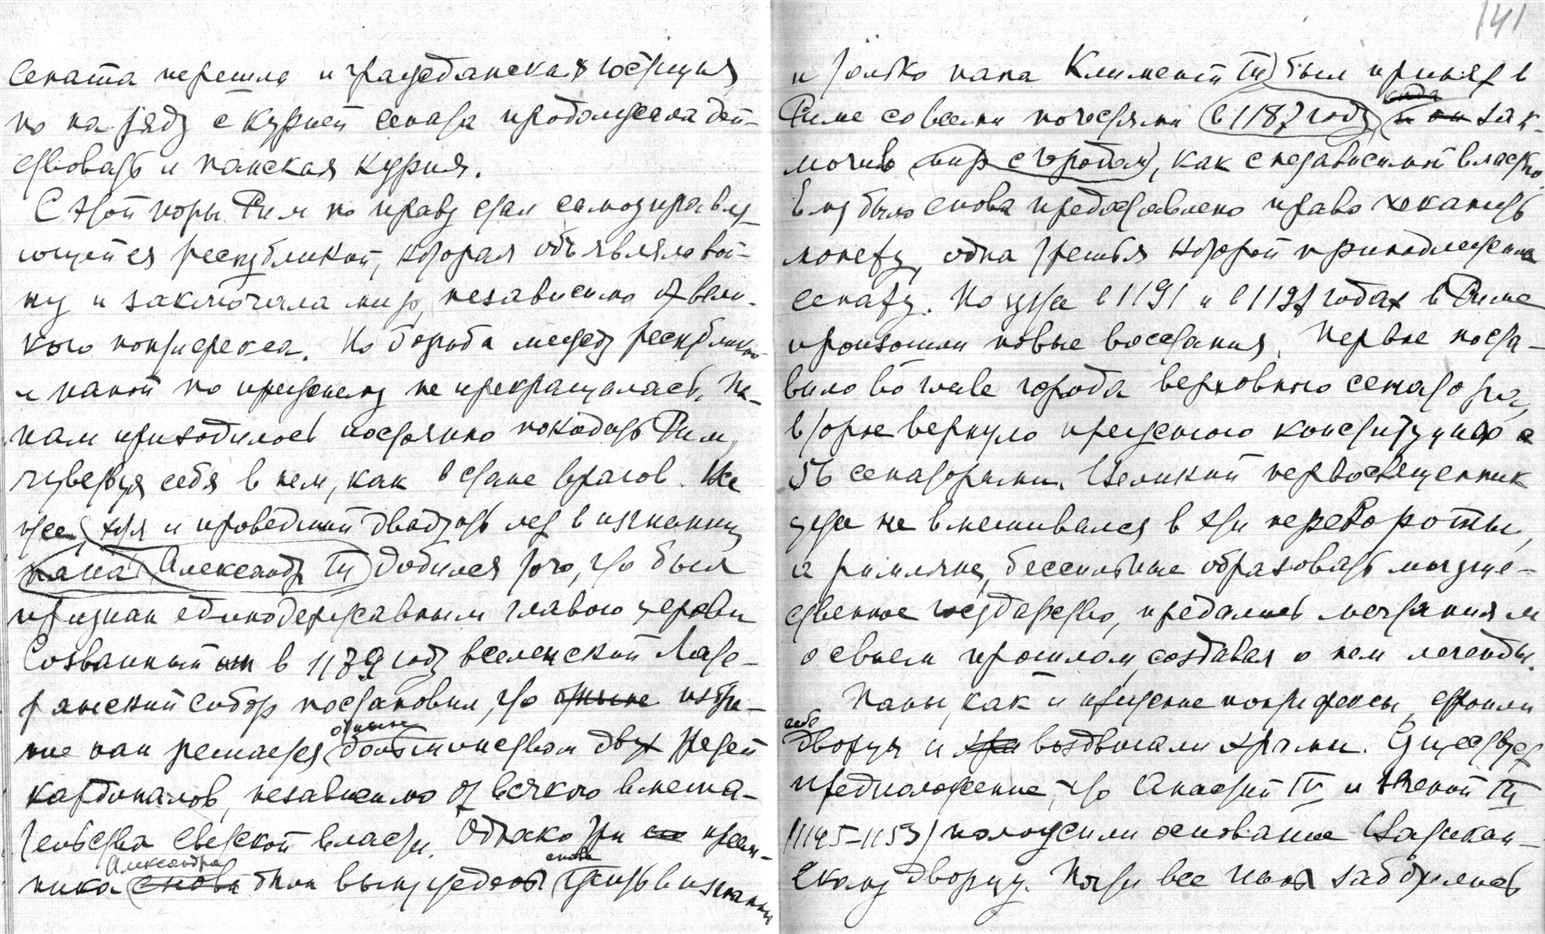 сената перешла и гражданская юстиция
но на ряду с курией сената продолжала дей-
ствовать и папская курия.
С этой поры Рим по праву стал самоуправля-
ющейся республикой, которая объявляла вой-
ну и заключала мир, независимо от вели-
кого понтифекса. Но борьба между республикой
и папой по прежнему не прекращалась. Па-
пам приходилось постоянно покидать Рим,
чувствуя себя в нем, как в стане врагов. Все
же, хотя и проведший двадцать лет в изгнании
папа Александр III добился того, что был
признан единодержавным главою церкви
Созванный им в 1179 году вселенский Лате-
ранский собор постановил, что отныне избра-
ние пап решается отныне большинством двух третей
кардиналов, независимо от всякого вмеша-
тельства светской власти. Однако три преем-
ника Александра снова были вынуждены снова жить в изгнании
141
и только папа Климент III был принят в
Риме со всеми почестями в 1187 году, сюда и он зак-
лючив мир с городом, как с независимой властью.
Ему было снова предоставлено право чеканить
монету, одна третья которой принадлежала
сенату. Но уже в 1191 и в 1197 годах в Риме
произошли новые восстания. Первое поста-
вило во главе города верховного сенатора,
второе вернуло прежнюю конституцию с
56 сенаторами. Великий первосвященник
уже не вмешивался в эти перевороты,
а римляне, бессильные образовать могуще-
ственное государство, предались мечтаниям
о своем прошлом, создавая о нем легенды.
Папы, как и прежние понтифексы, строили
себе дворцы и воздвигали храмы. Существует
предположение, что Анастасий IV и Евгений III
(1145-1153) положили основание Ватикан-
скому дворцу. Почти все папы заботились